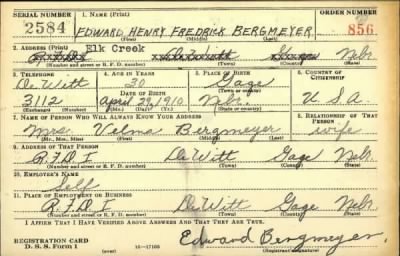 SERIAL NUMBER 1. NAME (Print) ORDER NUMBER
2584 EDWARD HENRY FREDRICK BERGMEYER 856
(First) (Middle) (Last)
2. ADDRESS (Print) Elk Creek
R.F.D.1 DeWitt Gage Nebr.
(Number and street or R. F. D. number) (Town) (County) (State)
3. TELEPHONE 4. AGE IN YEARS 5. PLACE OF BIRTH 6. COUNTRY OF CITIZENSHIP
DeWitt 30 Gage
DATE OF BIRTH (Town or county)
3112 April 29, 1910 Nebr. U.S.A.
(Exchange) (Number) (Mo.) (Day) (Yr.) (State or country)
7. NAME OF PERSON WHO WILL ALWAYS KNOW YOUR ADDRESS 8. RELATIONSHIP OF THAT PERSON
Mrs. Velma Bergmeyer wife
(Mr., Mrs., Miss) (First) (Middle) (Last)
9. ADDRESS OF THAT PERSON
R.F.D. I DeWitt Gage Nebr.
(Number and street or R. F. D. number) (Town) (County) (State)
10. EMPLOYER'S NAME
Self
11. PLACE OF EMPLOYMENT OR BUSINESS
R.F.D. I DeWitt Gage Nebr.
(Number and street or R. F. D. number) (Town) (County) (State)
I AFFIRM THAT I HAVE VERIFIED ABOVE ANSWERS AND THAT THEY ARE TRUE.
REGISTRATION CARD
D. S. S. Form 1 16—17105 Edward Bergmeyer.